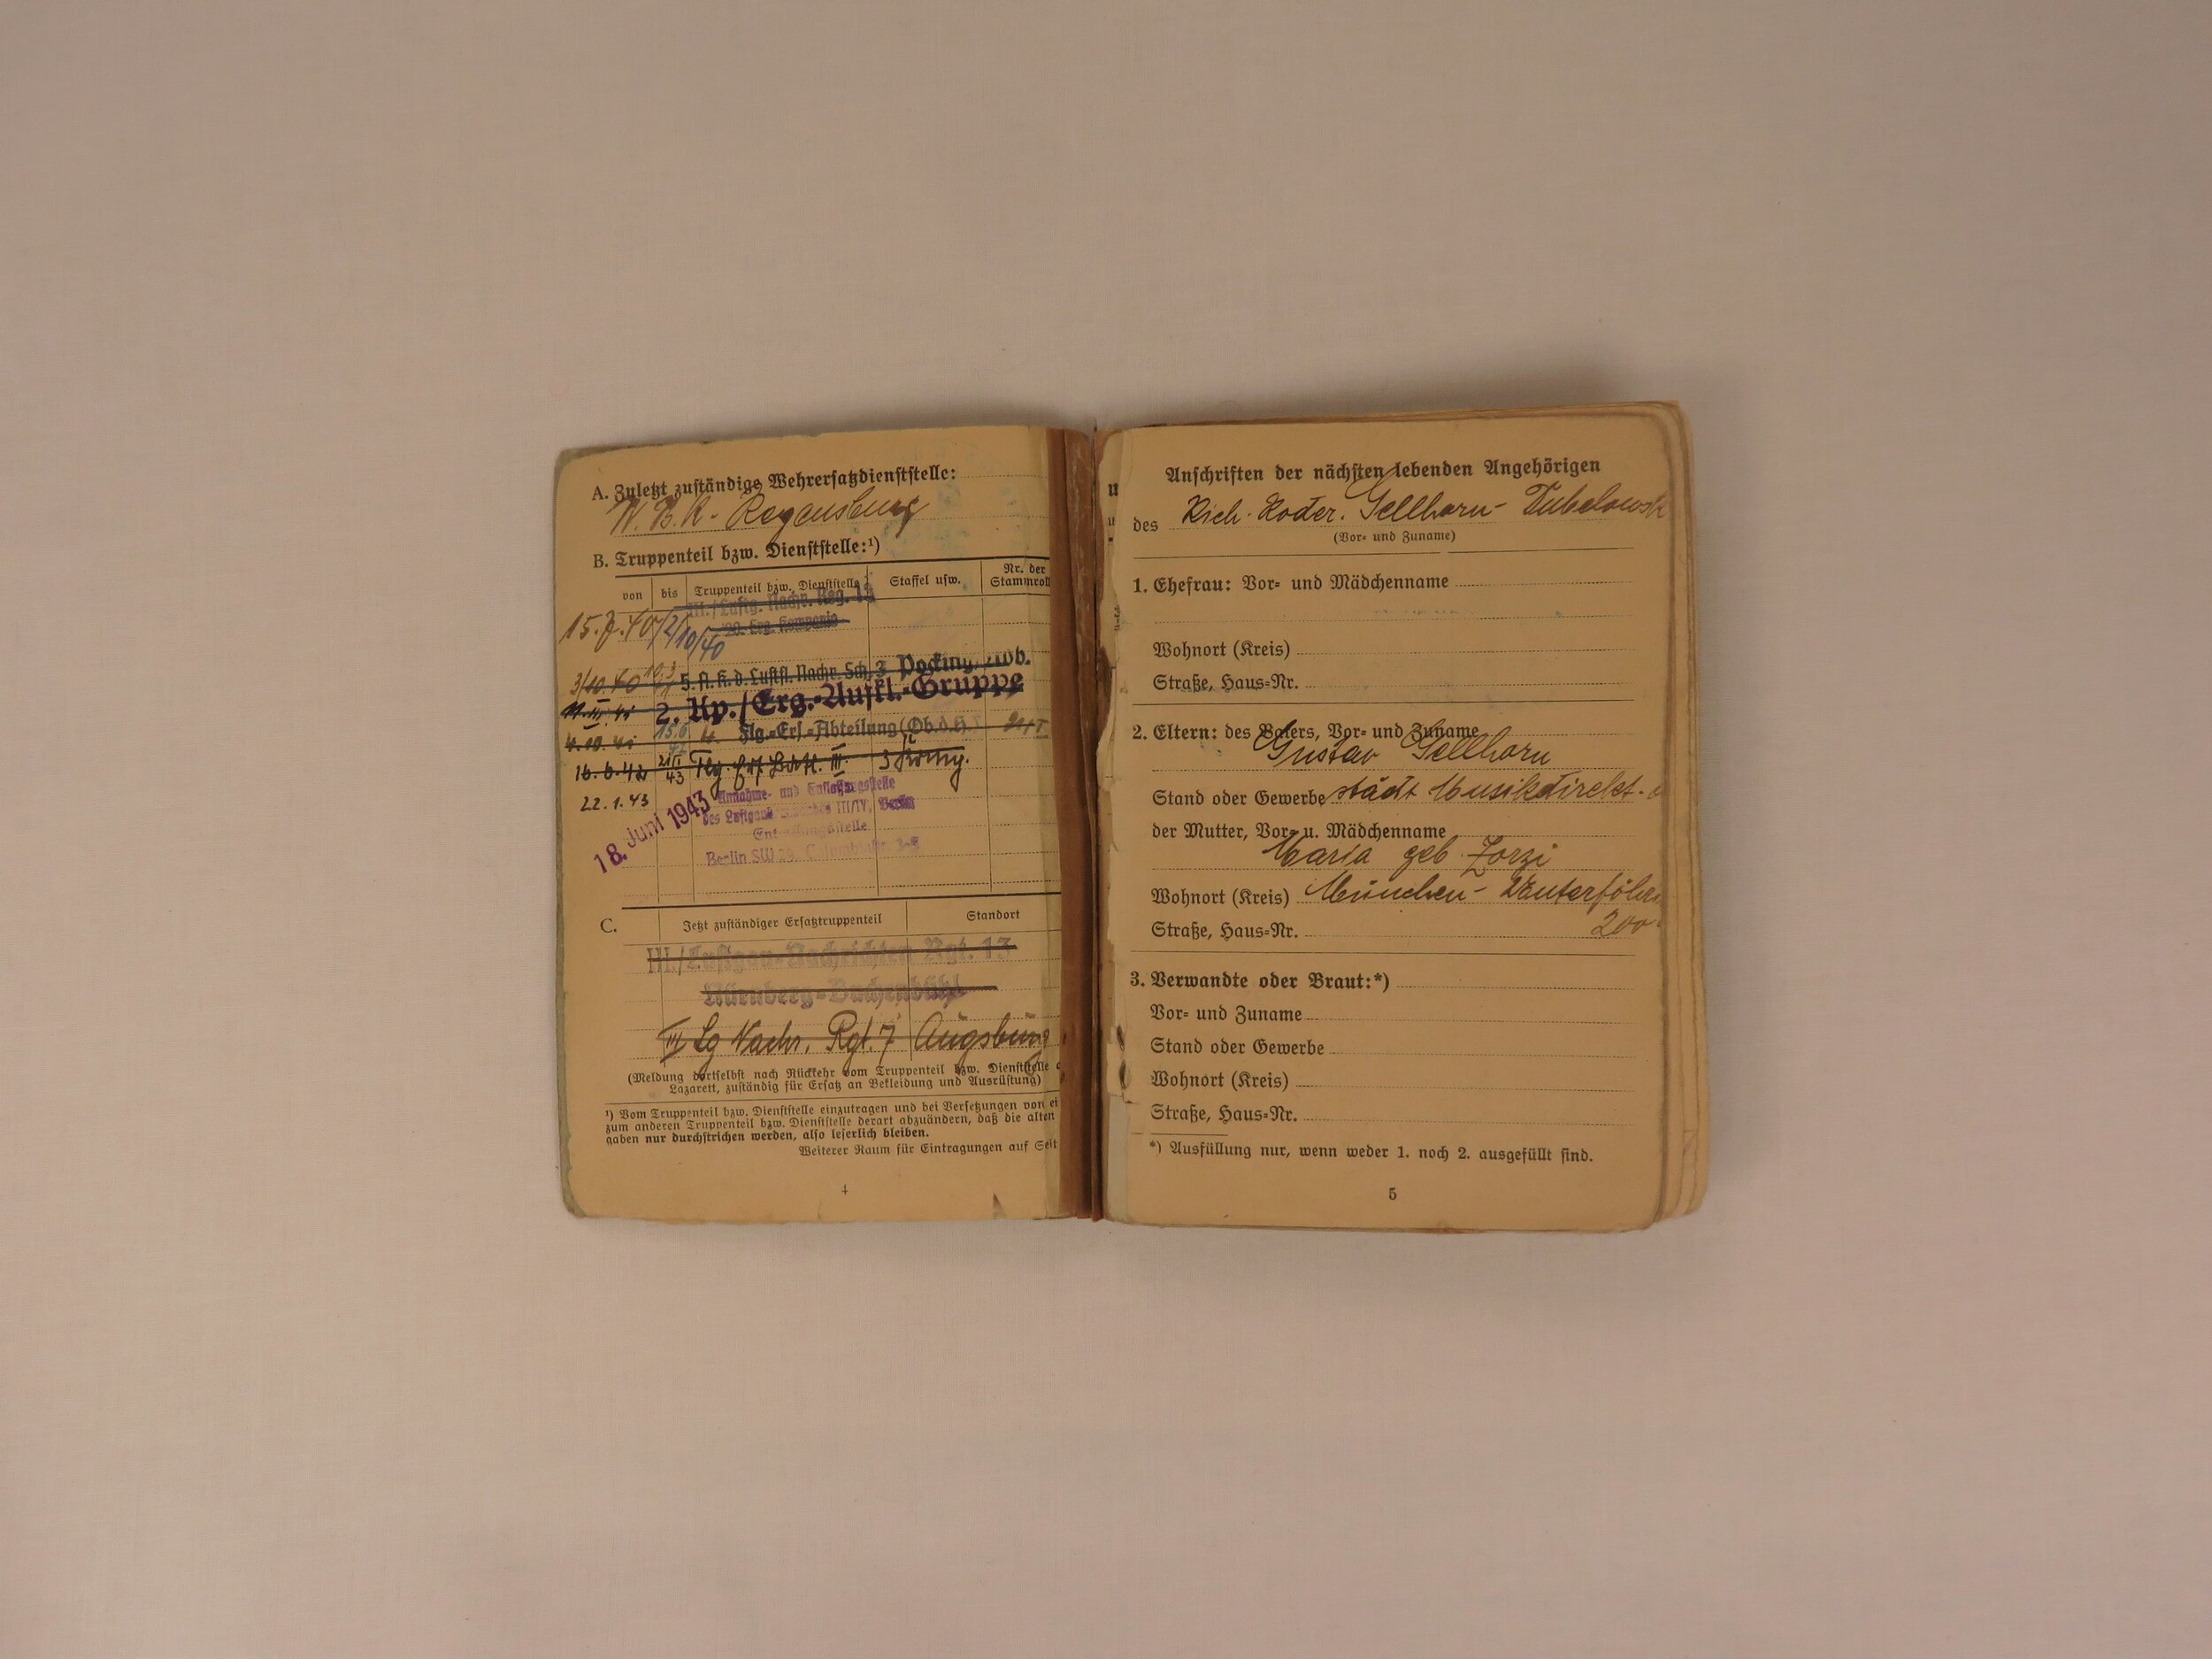 A. Zuletzt zuständige Wehrersatzdienststelle:
W. B. K. Regensburg
B. Truppenteil bzw. Dienststelle:¹)
von bis Truppenteil bzw. Dienststelle Staffel usw. Nr. der Stammroll
III./Luftg. Nachr. Rg. 13
15. 7. 40 2/10/40 Erg. Kompanie
3/10. 40 5. fl. K. d. Luftfl. Nachr. Sch. 3 Pocking,
2. Kp./Erg.-Aufkl.-Gruppe
4. 10. 41 15.6 42 4. Flg.-Ers.-Abteilung (Ob.d.L)
16. 6. 42 21/1 43 Flg. Ers. Batl. III. 3 Komp.
22. 1. 43
18. Juni 1943 Annahme- und Entlassungsstelle
des III/IV, Berlin
Berlin SW 29, 3-5
C. Jetzt zuständiger Ersatztruppenteil Standort
III./Luftgau-Nachrichten Rgt. 13
Nürnberg-Buchenbühl
III Lg Nachr. Rgt. 7 Augsburg
(Meldung dortselbst nach Rückkehr vom Truppenteil bzw. Dienststelle
Lazarett, zuständig für Ersatz an Bekleidung und Ausrüstung)
¹) Vom Truppenteil bzw. Dienststelle einzutragen und bei Versetzungen von ei
zum anderen Truppenteil bzw. Dienststelle derart abzuändern, daß die alten
gaben nur durchstrichen werden, also leserlich bleiben.
Weiterer Raum für Eintragungen auf Seit
4
Anschriften der nächsten lebenden Angehörigen
des Rich. Roder. Gellhorn-
(Vor- und Zuname)
1. Ehefrau: Vor- und Mädchenname
Wohnort (Kreis)
Straße, Haus-Nr.
2. Eltern: des Vaters, Vor- und Zuname
Gustav Gellhorn
Stand oder Gewerbe städt Musikdirekt.
der Mutter, Vor- u. Mädchenname
Maria geb. Zorzi
Wohnort (Kreis) München-
Straße, Haus-Nr. 200
3. Verwandte oder Braut:*)
Vor- und Zuname
Stand oder Gewerbe
Wohnort (Kreis)
Straße, Haus-Nr.
*) Ausfüllung nur, wenn weder 1. noch 2. ausgefüllt sind.
5